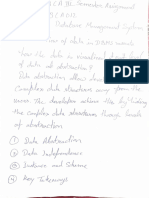 BCA III Semester Assignment
Database Management System
View of data in DBMS
How the data is visualized at each level
of data abstraction?
Data abstraction allow
Complex data structures away from the
users. The developer achieve this by hiding
the complex data structures through levels
of abstraction
① Data Abstraction
② Data Independence
③ Instance and Schema
④ Key Takeaways